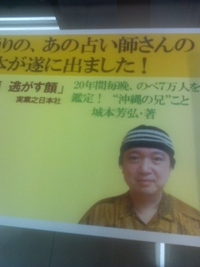 りの、あの占い師さんの
本が遂に出ました！
逃がす顔」
実業之日本社
20年間毎晩、のべ7万人を
鑑定！ “沖縄の兄”こと
城本芳弘・著